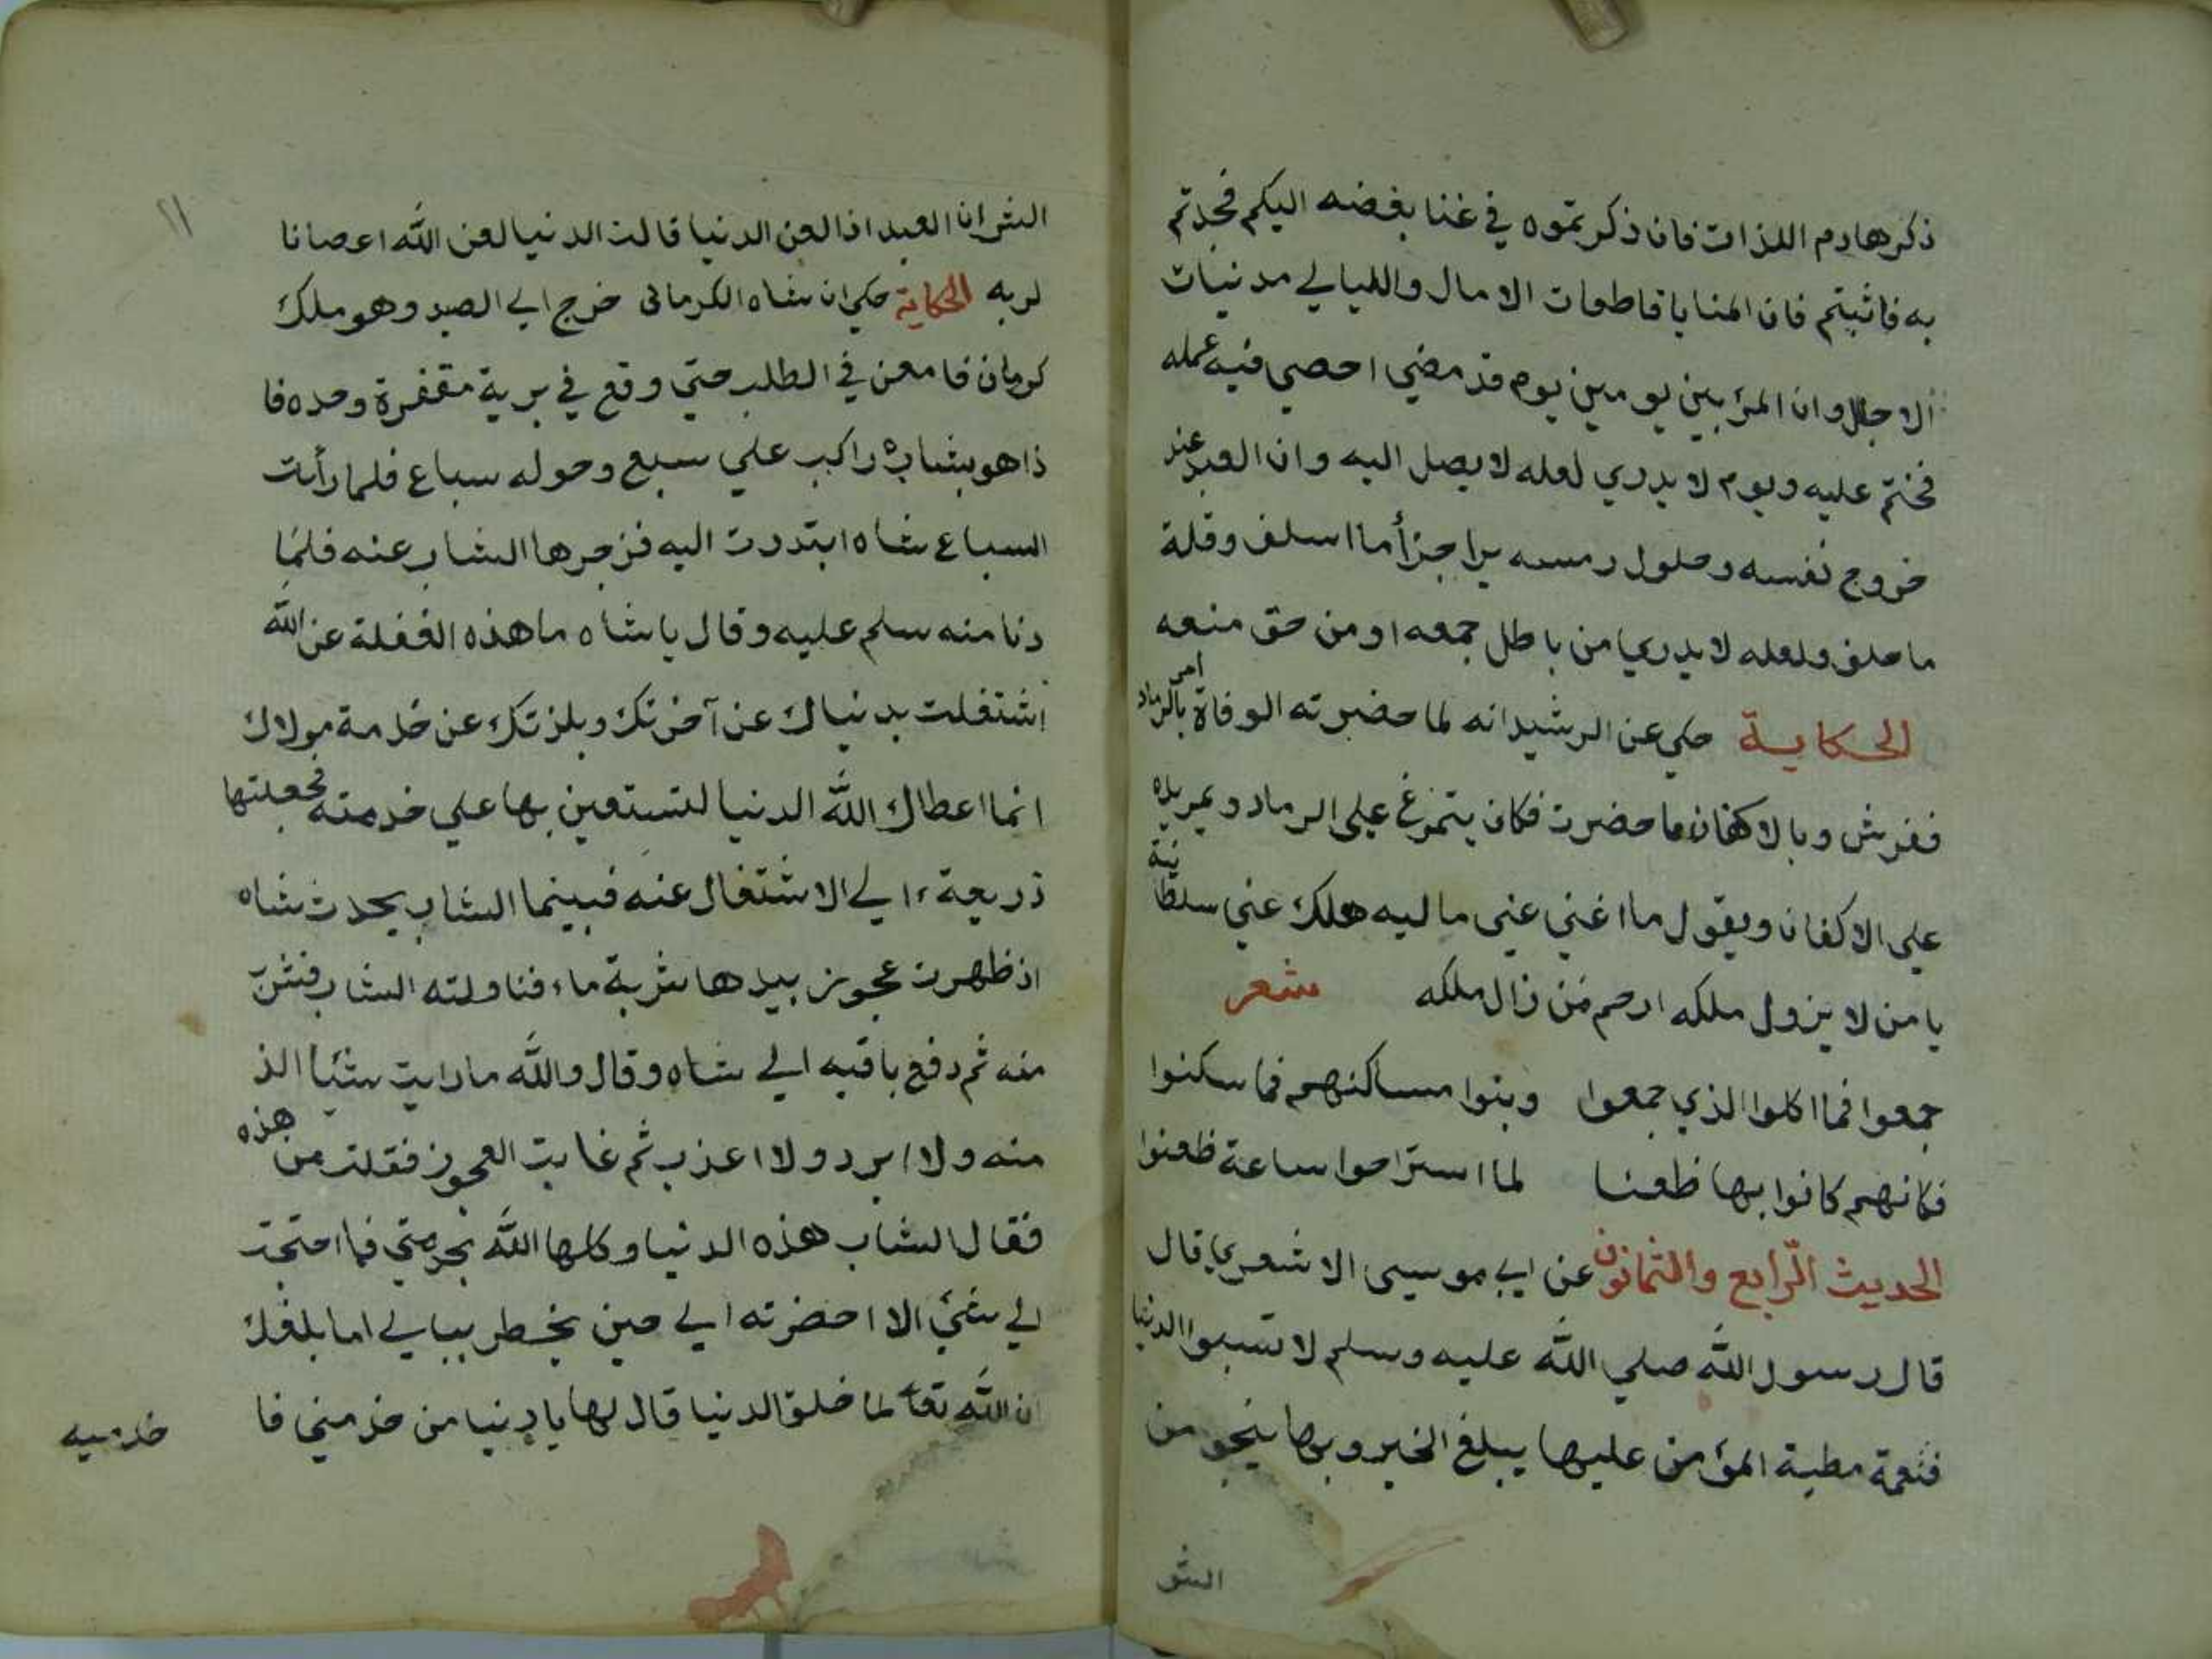 ذكر هادم اللذات فان ذكرتموه في غنا بغضه اليكم فجدتم
به فاثبتم فان المنايا قاطعات الامال والليالي مدنيات
الاجال وان المرء بين يومين يوم قد مضي احصي فيه عمله
فختم عليه ويوم لا يدري لعله لا يصل اليه وان العبد عند
خروج نفسه وحلول رمسه يرا جزأ ما اسلف وقلة
ما خلف ولعله لا يدري من باطل جمعه او من حق منعه
الحكاية حكي عن الرشيد انه لما حضرته الوفاة امر بالرماد
ففرش وبالاكفان فاحضرت فكان يتمرغ علي الرماد ويمر يده
علي الاكفان ويقول ما اغني عني ماليه هلك عني سلطانية
يا من لا يزول ملكه ارحم من زال ملكه شعر
جمعوا فما اكلوا الذي جمعوا وبنوا مساكنهم فما سكنوا
فكانهم كانوا بها ظعنا لما استراحوا ساعة ظعنوا
الحديث الرّابع والثمانون عن ابي موسى الاشعري قال
قال رسول الله صلي الله عليه وسلم لا تسبوا الدنيا
فنعمة مطية المؤمن عليها يبلغ الخير وبها ينجو من
الشر
١١
الشر ان العبد اذا لعن الدنيا قالت الدنيا لعن الله اعصانا
لربه الحكاية حكي ان شاه الكرماني خرج الي الصيد وهو ملك
كرمان فامعن في الطلب حتي وقع في برية مقفرة وحده فا
ذا هو بشاب راكب علي سبع وحوله سباع فلما رأت
السباع شاه ابتدرت اليه فزجرها الشاب عنه فلما
دنا منه سلم عليه وقال يا شاه ما هذه الغفلة عن الله
اشتغلت بدنياك عن آخرتك وبلذتك عن خدمة مولاك
انما اعطاك الله الدنيا لتستعين بها علي خدمته فجعلتها
ذريعة الي الاشتغال عنه فبينما الشاب يحدث شاه
اذ ظهرت عجوز بيدها شربة ماء فناولته الشاب فشرب
منه ثم دفع باقيه الي شاه وقال والله ما رايت شيئا الذ
منه ولا ابرد ولا اعذب ثم غابت العجوز فقلت من هذه
فقال الشاب هذه الدنيا وكلها الله بخدمتي فما احتجت
لي شئ الا احضرته الي حين يخطر ببالي اما بلغك
ان الله تعا لما خلق الدنيا قال لها يا دنيا من خدمني فا
خدميه